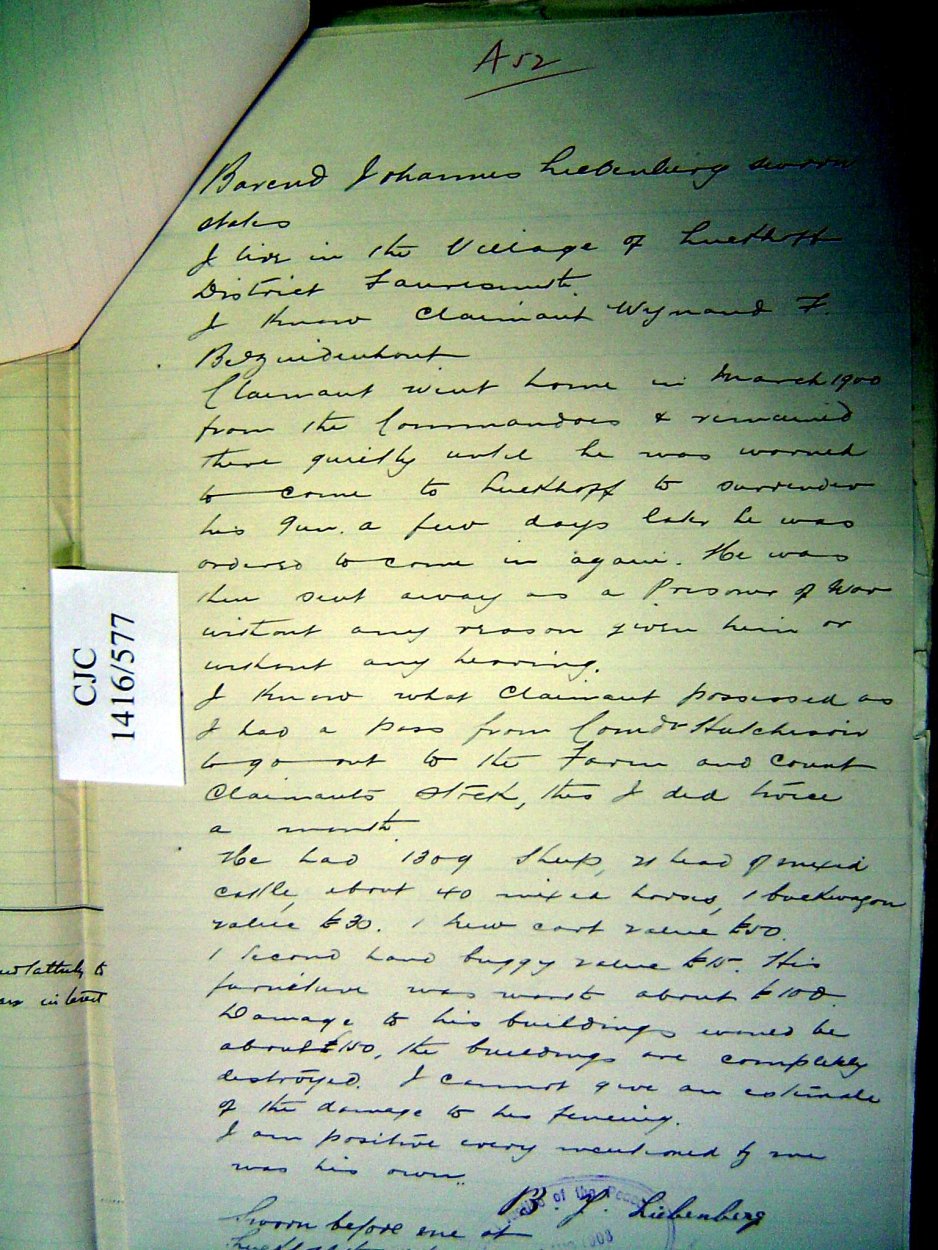 A 52
Barend Johannes Liebenberg sworn
states
I live in the Village of Luckhoff
District Fauresmith.
I know Claimant Wynand F.
Bezuidenhout
Claimant went home in March 1900
from the Commandoes & remained
there quietly until he was warned
to come to Luckhoff to surrender
his gun. a few days later he was
ordered to come in again. He was
then sent away as a Prisoner of War
without any reason given him or
without any hearing.
I know what Claimant possessed as
I had a pass from Comdr Hutcheson
to go out to the Farm and Count
Claimants stock, this I did twice
a month.
He had 1309 Sheep, 21 head of mixed
cattle, about 40 mixed horses, 1 buckwagon
value £30. 1 new cart value £50.
1 Second hand buggy value £15. His
furniture was worth about £100.
Damage to his buildings would be
about £150, the buildings are completely
destroyed. I cannot give an estimate
of the damage to his fencing.
I am positive every mentioned by me
was his own.
B. J. Liebenberg
Sworn before me at
Luckhoff
of the Peace
CJC
1416/577
lattuly to
interest